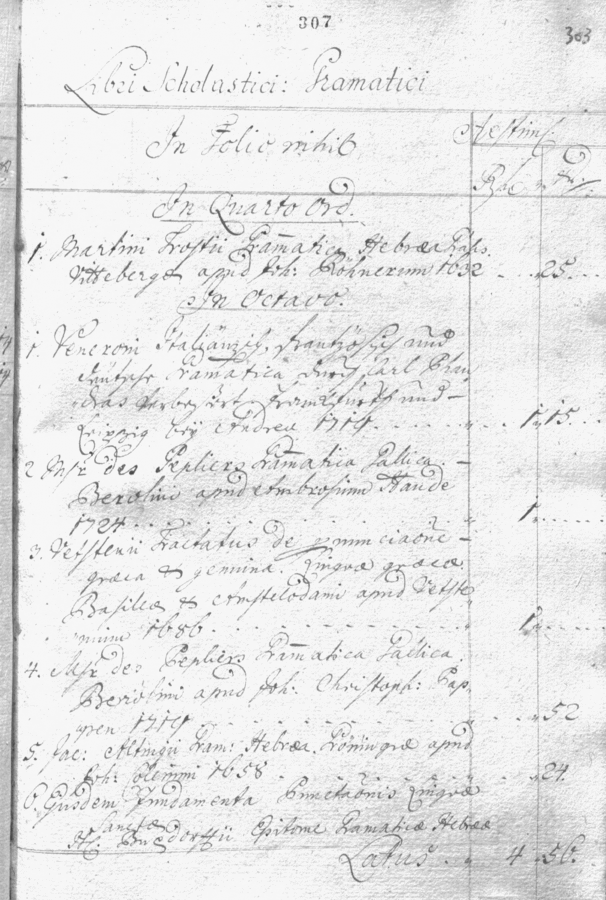 307
303
Libri Scholastici: Gramatici
In Folio nihil
Aestim:
In Quarto Ord.
1. Martini Trostii Gram̄atica Hebræa
Vitebergæ apud Joh: 1632 25
In Octavo.
1. Veneroni Italiänisch, frantzösisch und
deutsche Gramatica durch Carl
das verbesert. Franckfurth und
Leipzig bey Andreæ 1714 1 15
2 Msr des Pepliers Gram̄atica Gallica
Berolini apud Ambrosium Haude
1724 1
3. Vetstenii Tractatus de
græca & genuina Linguæ græcæ
Basileæ & Amstelodami apud Vetste
nium 1686 1
4. Msr des Pepliers Gram̄atica Gallica
Berolini apud Joh: Christoph: Pap
52
5. Jac: Altingii Gram: Hebræa. Groningæ apud
Joh: 1658 24
6. Ejusdem Fundamenta Linguæ
Sanctæ
Epitome Gramaticæ Hebreæ
Latus 4 56.